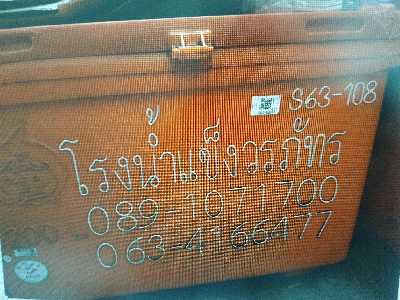 S63-108
โรงน้ำแข็งวรภัทร
089-1071700
063-4166477